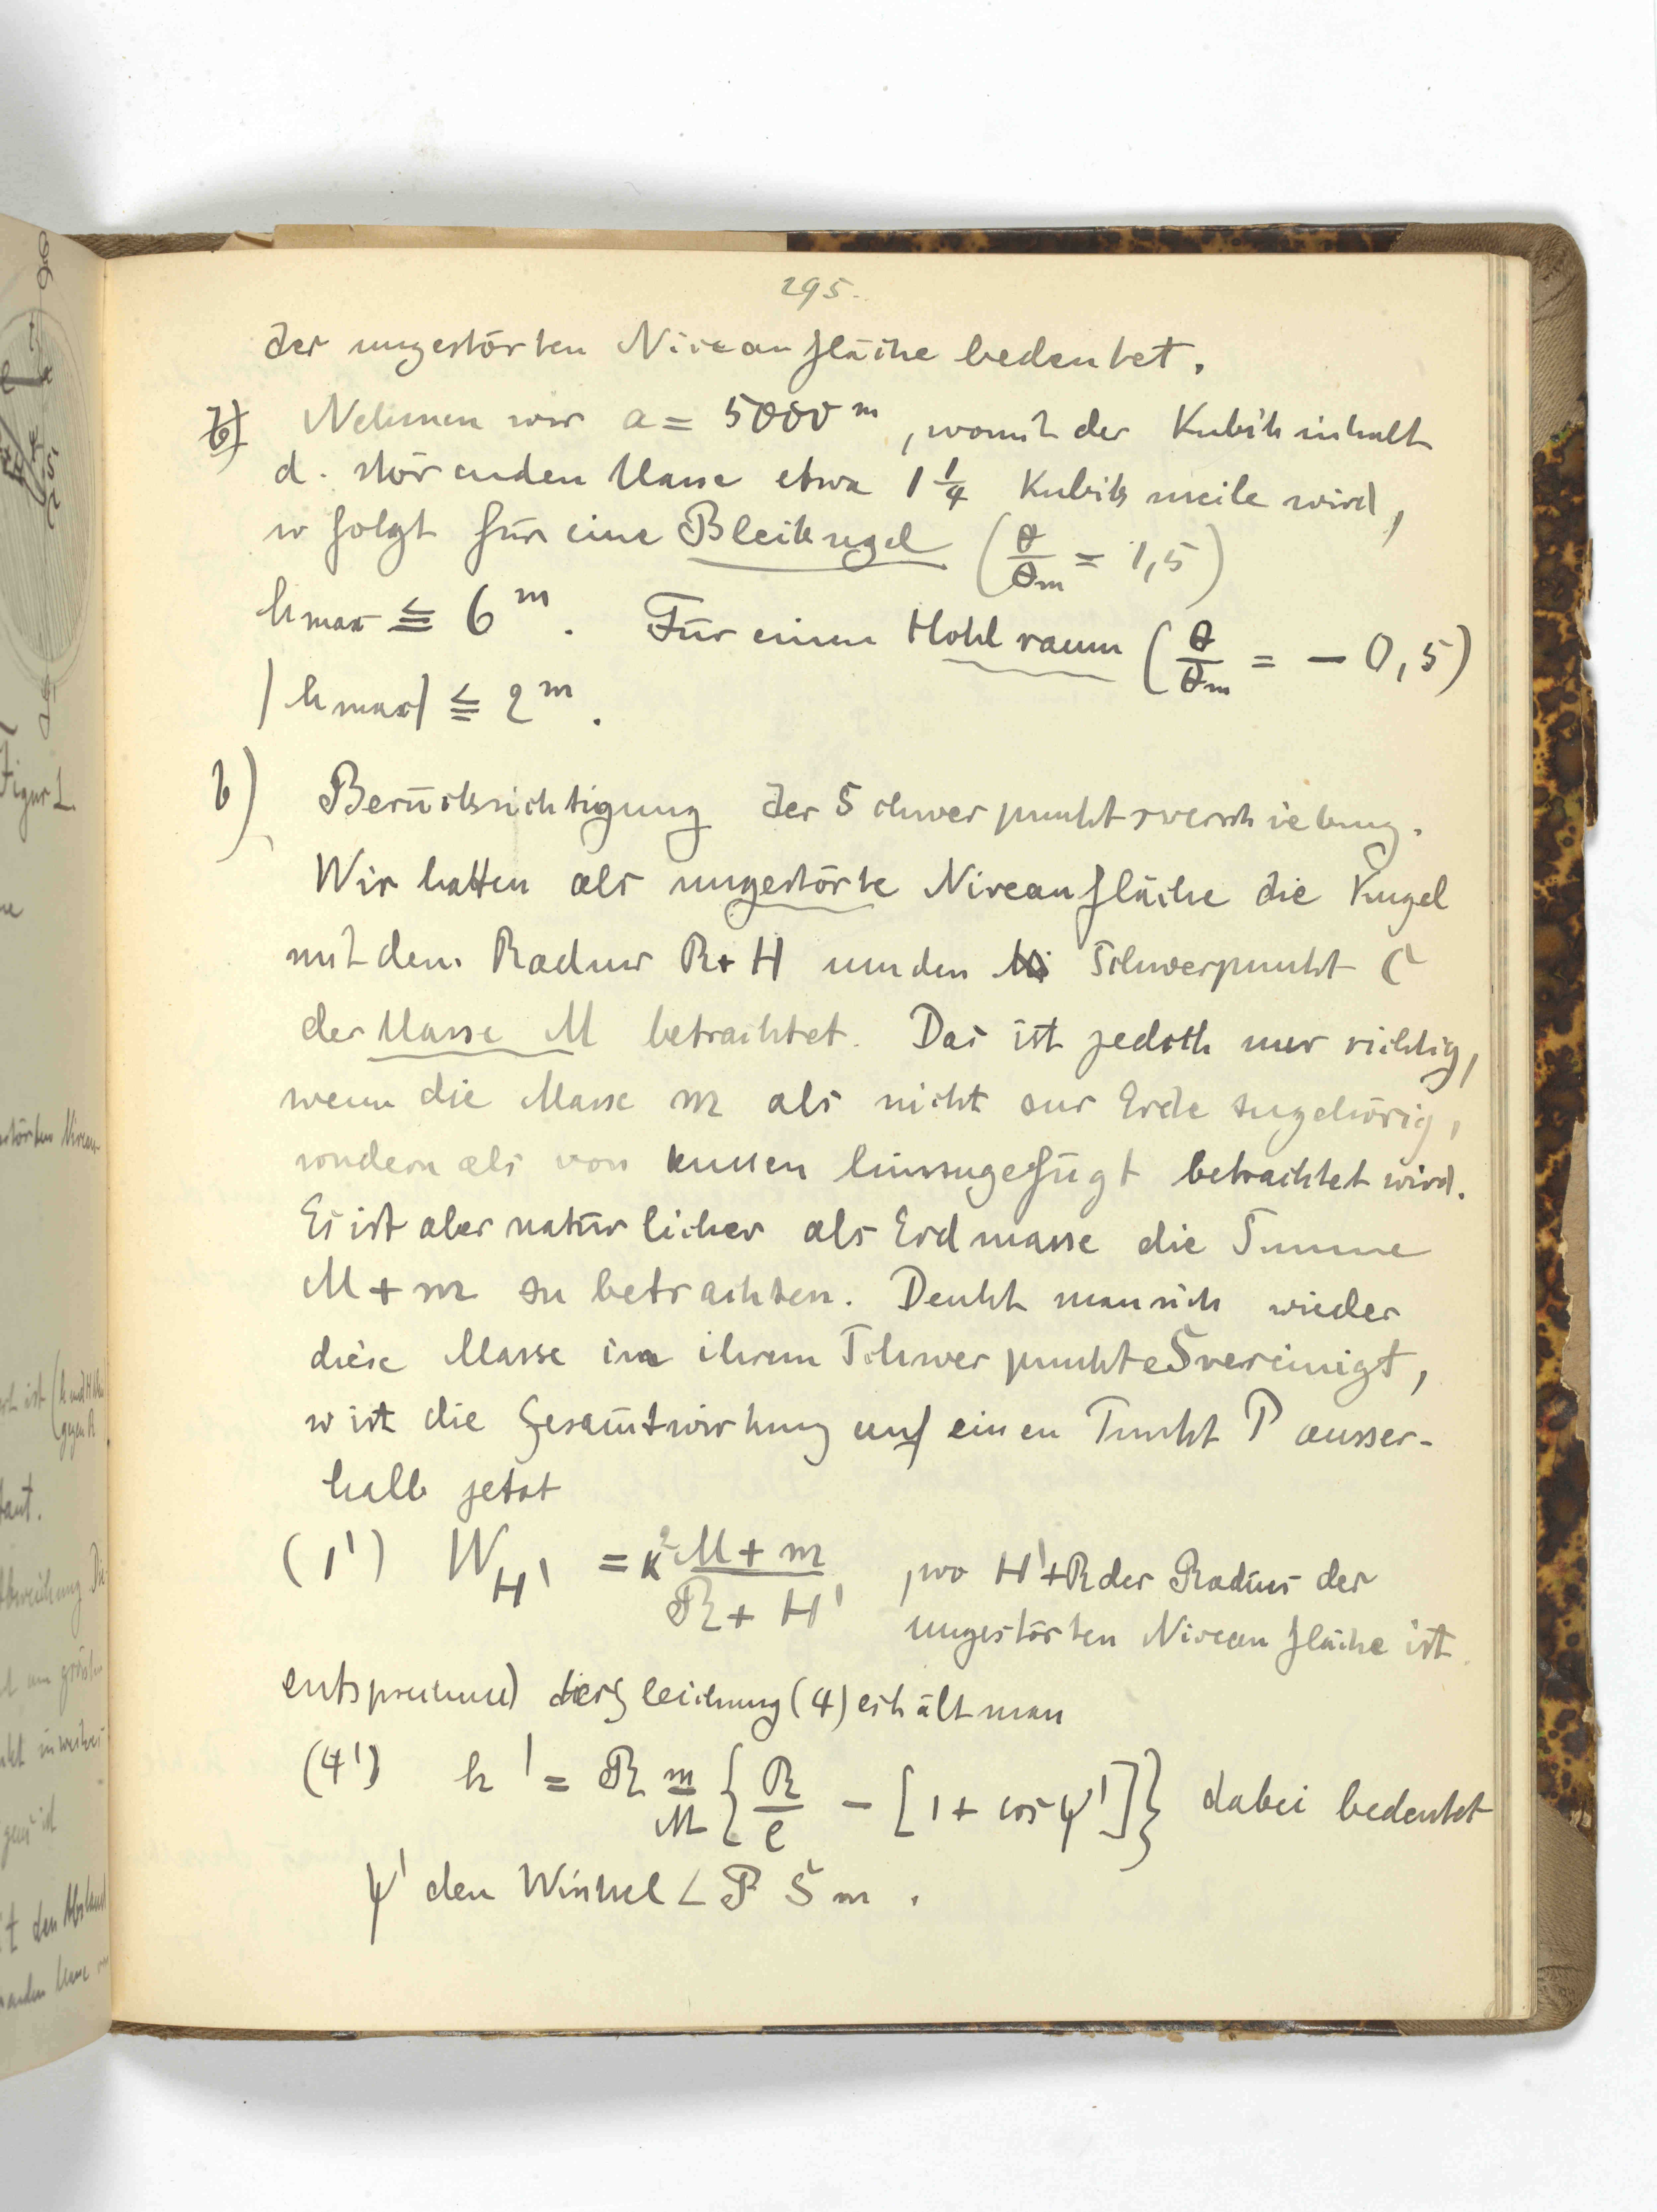 295.
der ungestörten Niveaufläche bedeutet.
b) Nehmen wir a = 5000 m, womit der Kubikinhalt
d. störenden Masse etwa 1 1/4 Kubikmeile wird,
so folgt für eine Bleikugel (θ/θm = 1,5)
hmax ≦ 6 m. Für einen Hohlraum (θ/θm = - 0,5)
|hmax| ≦ 2 m.
b) Berücksichtigung der Schwerpunktsverschiebung.
Wir hatten als ungestörte Niveaufläche die Kugel
mit dem Radius R + H um den Schwerpunkt C
der Masse M betrachtet. Das ist jedoch nur richtig,
wenn die Masse m als nicht zur Erde zugehörig,
sondern als von aussen hinzugefügt betrachtet wird.
Es ist aber natürlicher als Erdmasse die Summe
M + m zu betrachten. Denkt man sich wieder
diese Masse in ihrem Schwerpunkte S vereinigt,
so ist die Gesamtwirkung auf einen Punkt P ausser-
halb jetzt
(1') W_H' = κ² (M + m)/(R + H') , wo H' + R der Radius der
ungestörten Niveaufläche ist.
entsprechend der Gleichung (4) erhält man
(4') h' = R m/M {R/e - [1 + cos ψ']} dabei bedeutet
ψ' den Winkel ∠ P S m .
Figur 1.